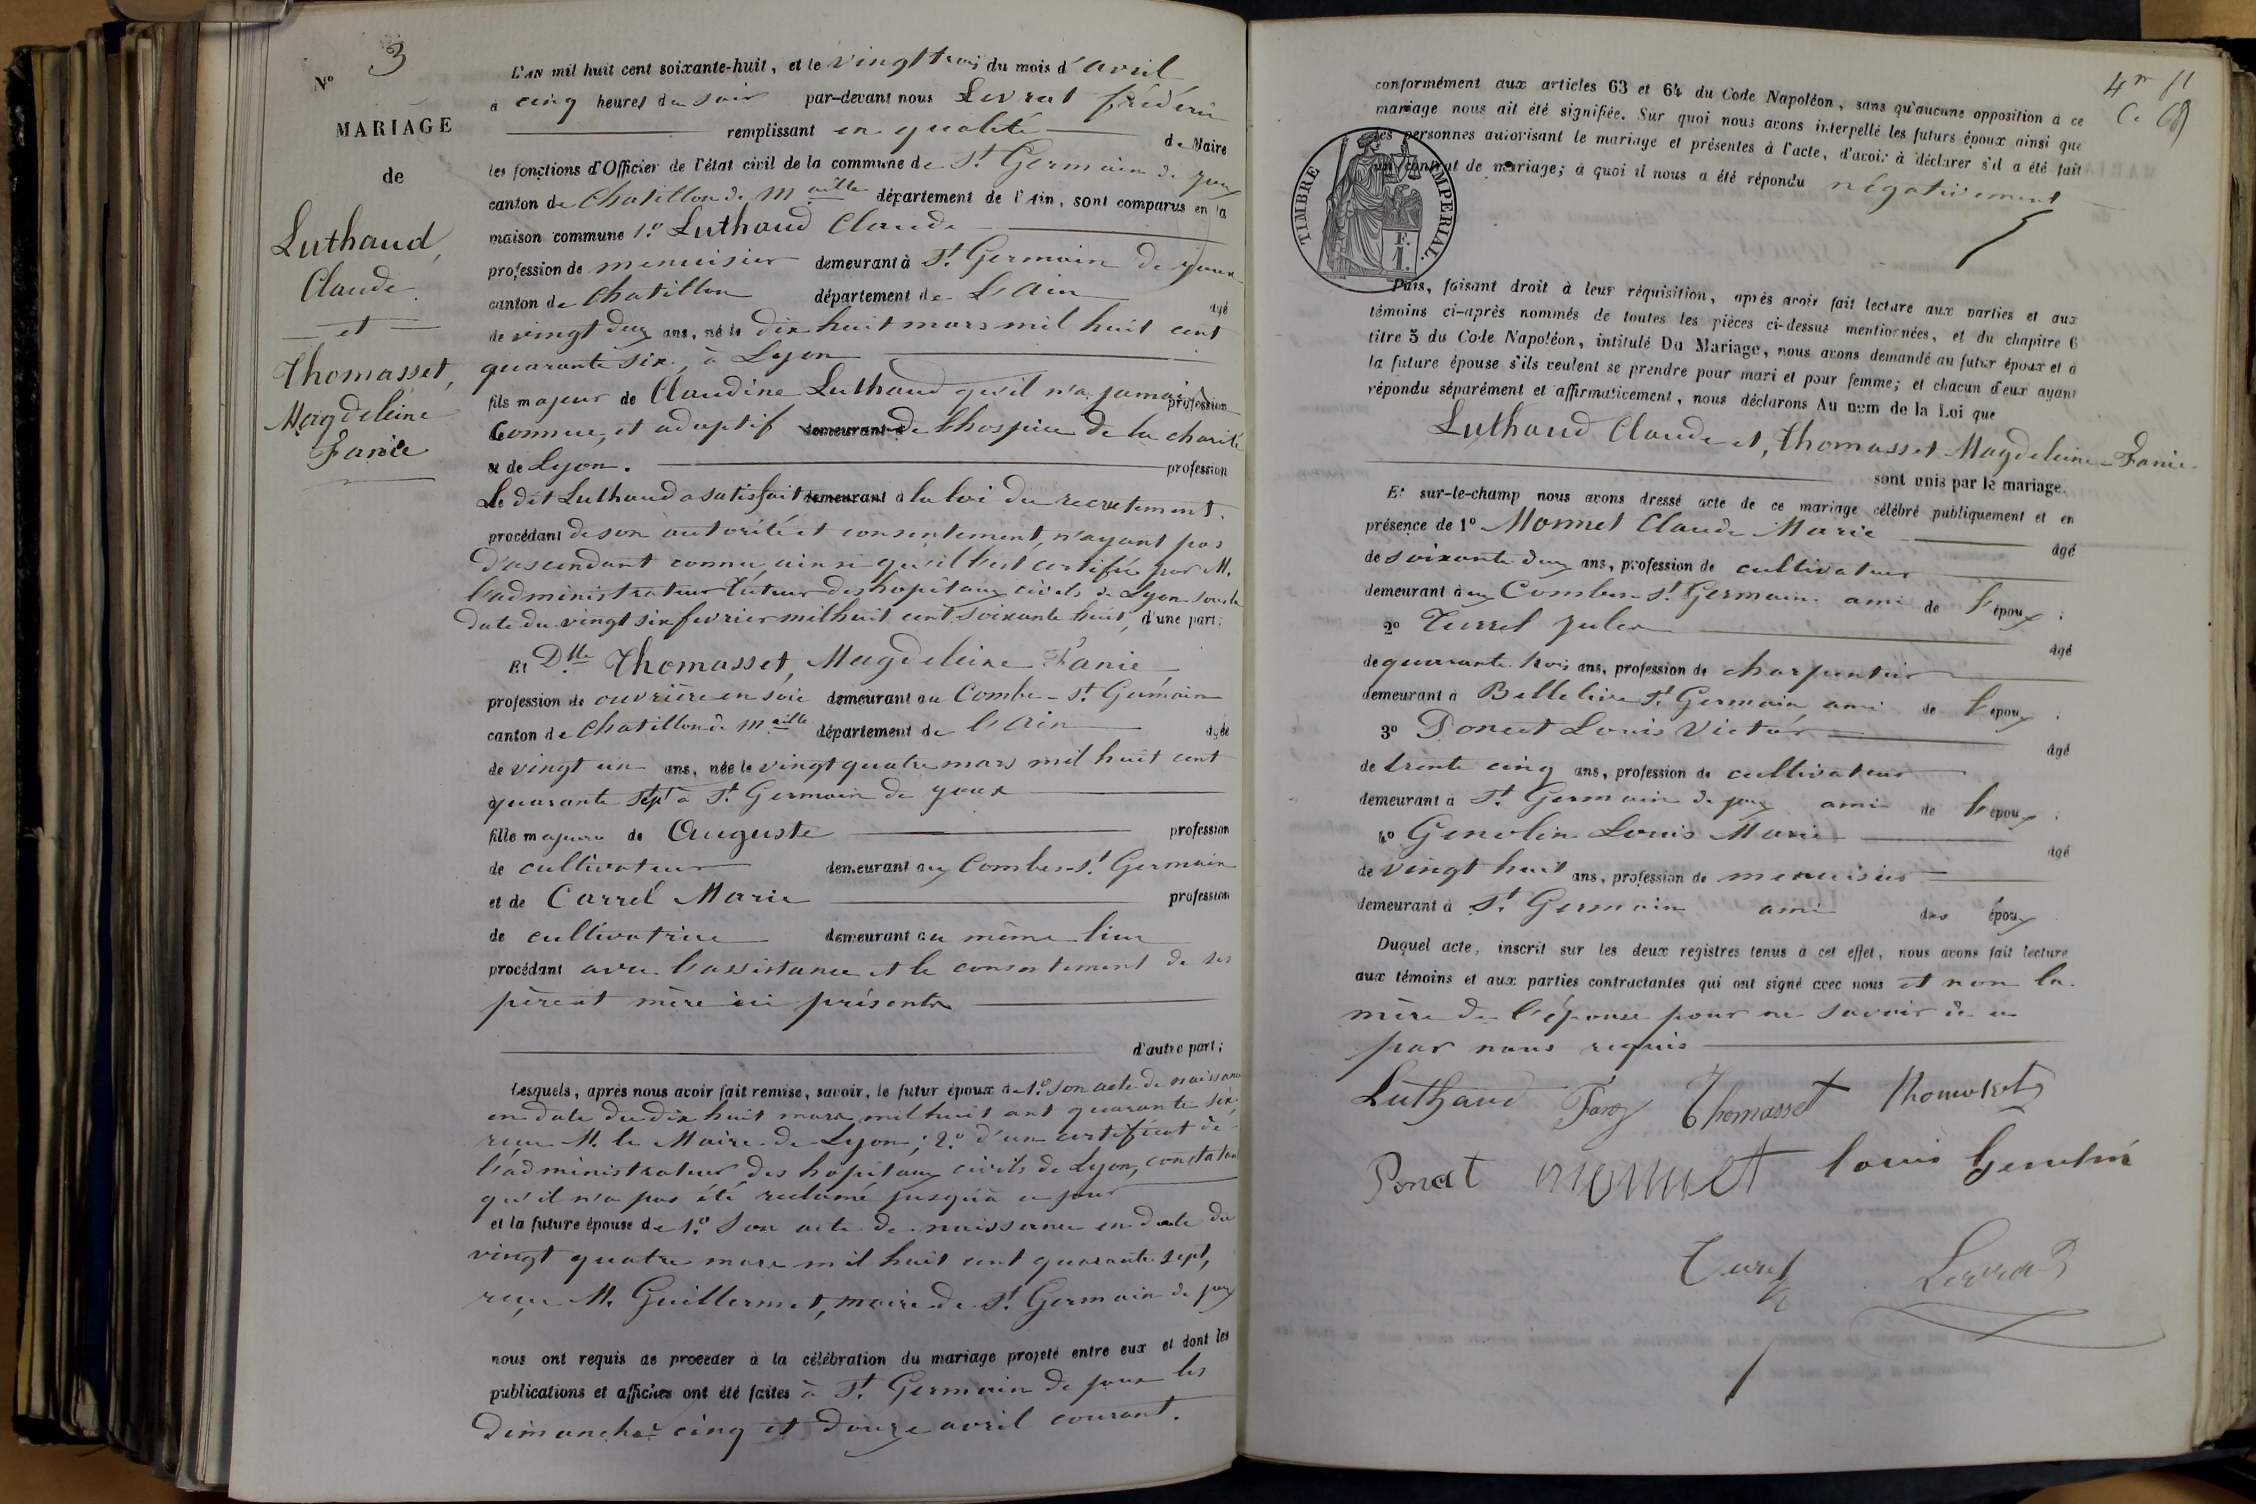 No 3
MARIAGE
de
Luthaud,
Claude
et
Thomasset,
Magdeleine
Fanie
L'AN mil huit cent soixante-huit, et le vingt trois du mois d'avril
à cinq heures du soir par-devant nous Levrat frédéric
remplissant en qualité de Maire
les fonctions d'Officier de l'état civil de la commune de St. Germain de Joux
canton de Chatillon de Maille département de l'Ain, sont comparus en la
maison commune 1.o Luthaud Claude
profession de menuisier demeurant à St. Germain de Joux
canton de Chatillon département de L'Ain agé
de vingt deux ans, né le dix huit mars mil huit cent
quarante six, à Lyon
fils majeur de Claudine Luthaud qu'il n'a jamais profession
Connue, et adoptif demeurant à de l'hospice de la charité
et de Lyon. profession
Le dit Luthaud a satisfait demeurant à la loi du recrutement.
procédant de son autorité et consentement, n'ayant pas
d'ascendant connu, ainsi qu'il est certifié par M.
l'administrateur tuteur des hopitaux civils de Lyon sous la
date du vingt six fevrier mil huit cent soixante huit, d'une part;
Et Dlle Thomasset, Magdeleine Fanie
profession de ouvrière en soie demeurant au Combe-St. Germain
canton de Chatillon de Maille département de L'Ain agée
de vingt un ans, née le vingt quatre mars mil huit cent
quarante sept à St. Germain de Joux
fille majeure de Auguste profession
de cultivateur demeurant aux Combes-St. Germain
et de Carrel Marie profession
de cultivatrice demeurant au même lieu
procédant avec l'assistance et le consentement de ses
père et mère ici présents
d'autre part;
Lesquels, après nous avoir fait remise, savoir, le futur époux de 1.o son acte de naissance
en date du dix huit mars mil huit cent quarante six,
reçu M. le Maire de Lyon; 2.o d'un certificat de
l'administrateur des hopitaux civils de Lyon, constatant
qu'il n'a pas été reclamé jusqu'à ce jour
et la future épouse de 1.o Son acte de naissance en date du
vingt quatre mars mil huit cent quarante sept,
reçu M. Guillermet, maire de St. Germain de Joux
nous ont requis de proceder à la célébration du mariage projeté entre eux et dont les
publications et affiches ont été faites à St. Germain de Joux les
dimanches cinq et douze avril courant.
conformément aux articles 63 et 64 du Code Napoléon, sans qu'aucune opposition à ce
mariage nous ait été signifiée. Sur quoi nous avons interpellé les futurs époux ainsi que
les personnes autorisant le mariage et présentes à l'acte, d'avoir à déclarer s'il a été fait
un contrat de mariage; à quoi il nous a été répondu négativement
TIMBRE IMPERIAL.
F.
1.
Puis, faisant droit à leur réquisition, après avoir fait lecture aux parties et aux
témoins ci-après nommés de toutes les pièces ci-dessus mentionnées, et du chapitre 6
titre 5 du Code Napoléon, intitulé Du Mariage, nous avons demandé au futur époux et à
la future épouse s'ils veulent se prendre pour mari et pour femme; et chacun d'eux ayant
répondu séparément et affirmativement, nous déclarons Au nom de la Loi que
Luthaud Claude et, Thomasset Magdeleine-Fanie
sont unis par le mariage.
Et sur-le-champ nous avons dressé acte de ce mariage célébré publiquement et en
présence de 1o Monnet Claude Marie agé
de soixante deux ans, profession de cultivateur
demeurant aux Combes-St. Germain ami de l'époux;
2o Turrel Jules agé
de quarante trois ans, profession de charpentier
demeurant à St. Germain ami de l'époux;
3o Poncet Louis Victor agé
de trente cinq ans, profession de cultivateur
demeurant à St. Germain de Joux ami de l'époux;
4o Genolin Louis Marie agé
de vingt huit ans, profession de menuisier
demeurant à St. Germain ami des époux
Duquel acte, inscrit sur les deux registres tenus à cet effet, nous avons fait lecture
aux témoins et aux parties contractantes qui ont signé avec nous et non la
mère de l'épouse pour ne savoir de ce
par nous requis
Luthaud Fany Thomasset
Poncet monnet Louis Genolin
Turrel Levrat